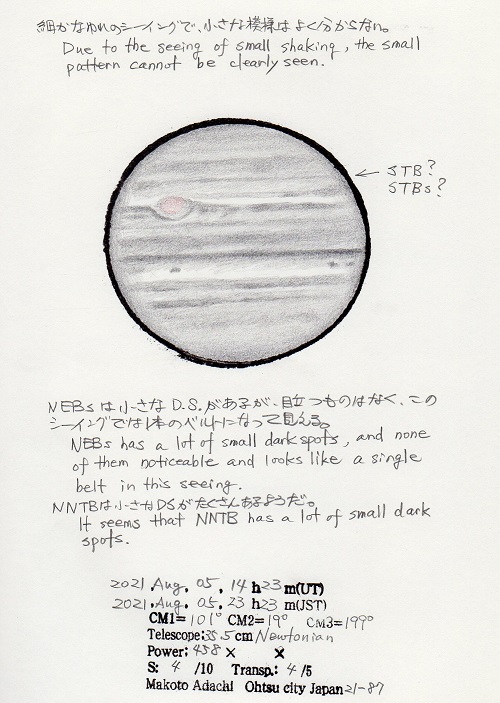 細かなゆれのシーイングで、小さな模様はよく分からない。
Due to the seeing of small shaking, the small
pattern cannot be clearly seen.
← STB?
STBs?
NEBsは小さなD.S.があるが、目立つものはなく、この
シーイングでは1本のベルトになって見える。
NEBs has a lot of small dark spots, and none
of them noticeable and looks like a single
belt in this seeing.
NNTBは小さなDSがたくさんあるようだ。
It seems that NNTB has a lot of small dark
spots.
2021.Aug. 05, 14 h23 m(UT)
2021.Aug. 05, 23 h23 m(JST)
CM1= 101° CM2= 19° CM3= 199°
Telescope:35.5cm Newtonian
Power: 458 × ×
S: 4 /10 Transp.: 4 /5
Makoto Adachi Ohtsu city Japan 21-87